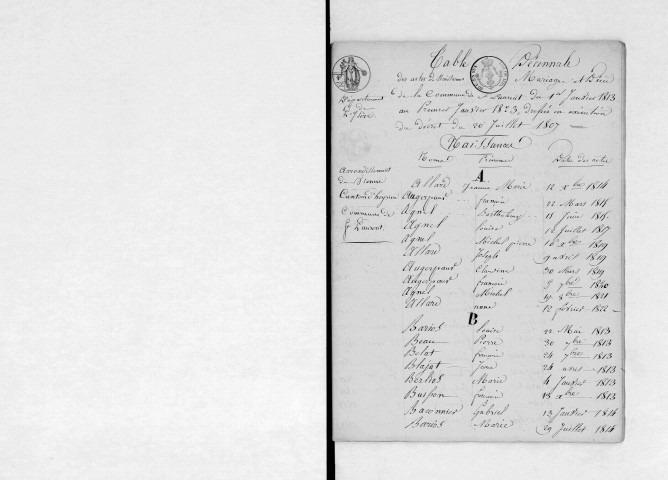 Table Décennale
des actes de Naissance Mariage & Décè
de la Commune de St Laurent du 1er Janvier 1813
au Premier Janvier 1823, dressée en exécution
du décret du 20 Juillet 1807
Département
de
L'Isère
Arrondissement
de Vienne
Canton d'heyrieu
Commune de
St Laurent
Naissance
Noms Prénoms Date des actes
A
Allard Jeanne Marie 12 Xbre 1814
Augerpaud françois 22 Mars 1815
Agnel Barthelemy 11 Juin 1815
Agnel louise 12 Juillet 1817
Agnel Michel pierre 16 Xbre 1819
Allard Joseph 9 avril 1819
Augerpaud Claudine 30 Mars 1819
Augerpaud françois 9 7bre 1820
Agnel Michel 19 8bre 1821
Allard 12 février 1822
B
Barios louise 22 Mai 1813
Beau Pierre 30 7bre 1813
Belat françois 24 7bre 1813
Jean 24 1813
Berlios Marie 4 Janvier 1813
Buisson françois 13 Xbre 1813
Baconnier Gabriel 13 Janvier 1814
Barios Marie 29 Juillet 1814